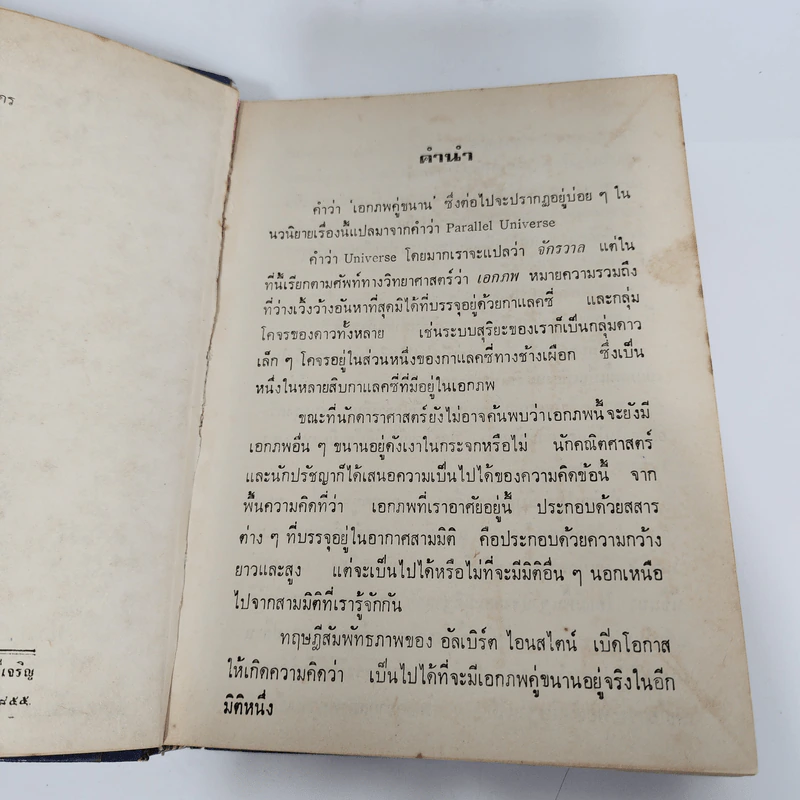 คำนำ
คำว่า 'เอกภพคู่ขนาน' ซึ่งต่อไปจะปรากฏอยู่บ่อย ๆ ใน
นวนิยายเรื่องนี้แปลมาจากคำว่า Parallel Universe
คำว่า Universe โดยมากเราจะแปลว่า จักรวาล แต่ใน
ที่นี้เรียกตามศัพท์ทางวิทยาศาสตร์ว่า เอกภพ หมายความรวมถึง
ที่ว่างเวิ้งว้างอันหาที่สุดมิได้ที่บรรจุอยู่ด้วยกาแลคซี่ และกลุ่ม
โคจรของดาวทั้งหลาย เช่นระบบสุริยะของเราก็เป็นกลุ่มดาว
เล็ก ๆ โคจรอยู่ในส่วนหนึ่งของกาแลคซี่ทางช้างเผือก ซึ่งเป็น
หนึ่งในหลายสิบกาแลคซี่ที่มีอยู่ในเอกภพ
ขณะที่นักดาราศาสตร์ยังไม่อาจค้นพบว่าเอกภพนี้จะยังมี
เอกภพอื่น ๆ ขนานอยู่ดังเงาในกระจกหรือไม่ นักคณิตศาสตร์
และนักปรัชญาก็ได้เสนอความเป็นไปได้ของความคิดข้อนี้ จาก
พื้นความคิดที่ว่า เอกภพที่เราอาศัยอยู่นี้ ประกอบด้วยสสาร
ต่าง ๆ ที่บรรจุอยู่ในอากาศสามมิติ คือประกอบด้วยความกว้าง
ยาวและสูง แต่จะเป็นไปได้หรือไม่ที่จะมีมิติอื่น ๆ นอกเหนือ
ไปจากสามมิติที่เรารู้จักกัน
ทฤษฎีสัมพัทธภาพของ อัลเบิร์ต ไอนสไตน์ เปิดโอกาส
ให้เกิดความคิดว่า เป็นไปได้ที่จะมีเอกภพคู่ขนานอยู่จริงในอีก
มิติหนึ่ง